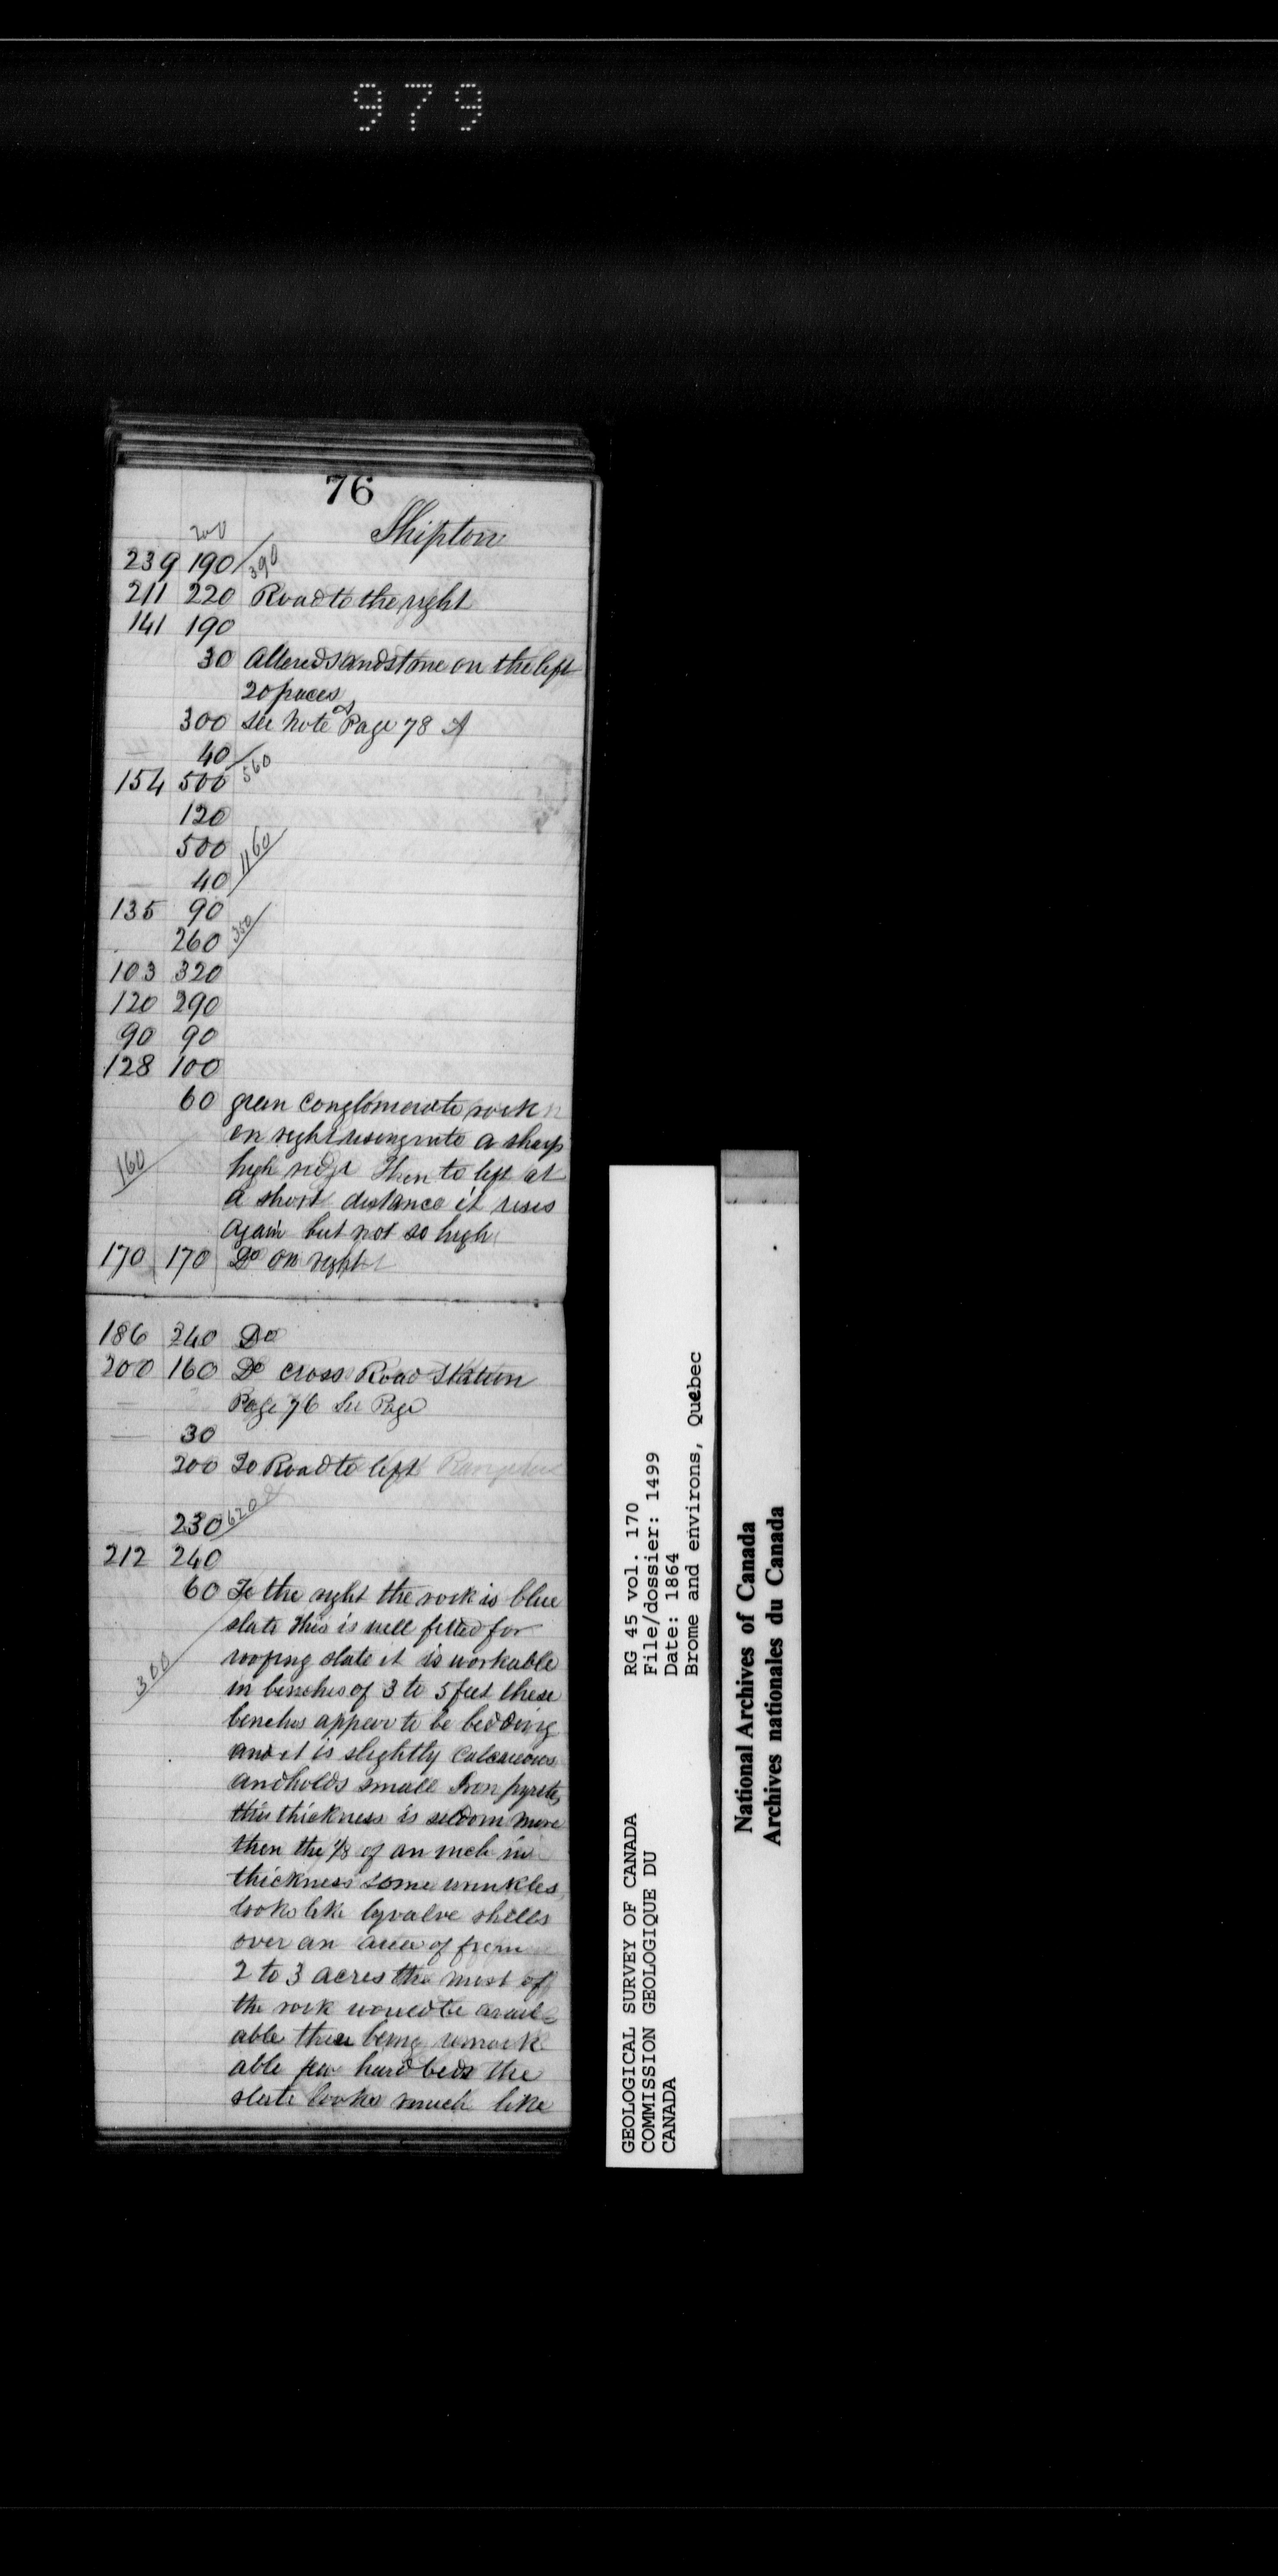 979
76
Shipton
200
239 190 390
211 220 Road to the right
141 190
30 altered sandstone on the left
20 paces
300 see note Page 78 A
40
154 500 560
120
500
40 1160
135 90
260 350
103 320
120 290
90 90
128 100
60 green conglomerate rock
on right rising into a sharp
160 high ridge then to left at
a short distance it rises
again but not so high
170 170 Do on right
186 240 Do
200 160 Do cross Road Station
Page 76 See Page
30
200 To Road to left
230 620
212 240
60 To the right the rock is blue
slate this is well fitted for
roofing slate it is workable
300 in benches of 3 to 5 feet these
benches appear to be bedding
and it is slightly calcareous
and holds small Iron pyrites
this thickness is seldom more
then the 1/8 of an inch in
thickness some wrinkles
looks like byvalve shells
over an area of from
2 to 3 acres the most of
the rock would be avail=
able there being remark
able few hard beds the
slate looks much like
GEOLOGICAL SURVEY OF CANADA
COMMISSION GEOLOGIQUE DU
CANADA
RG 45 vol. 170
File/dossier: 1499
Date: 1864
Brome and environs, Quebec
National Archives of Canada
Archives nationales du Canada